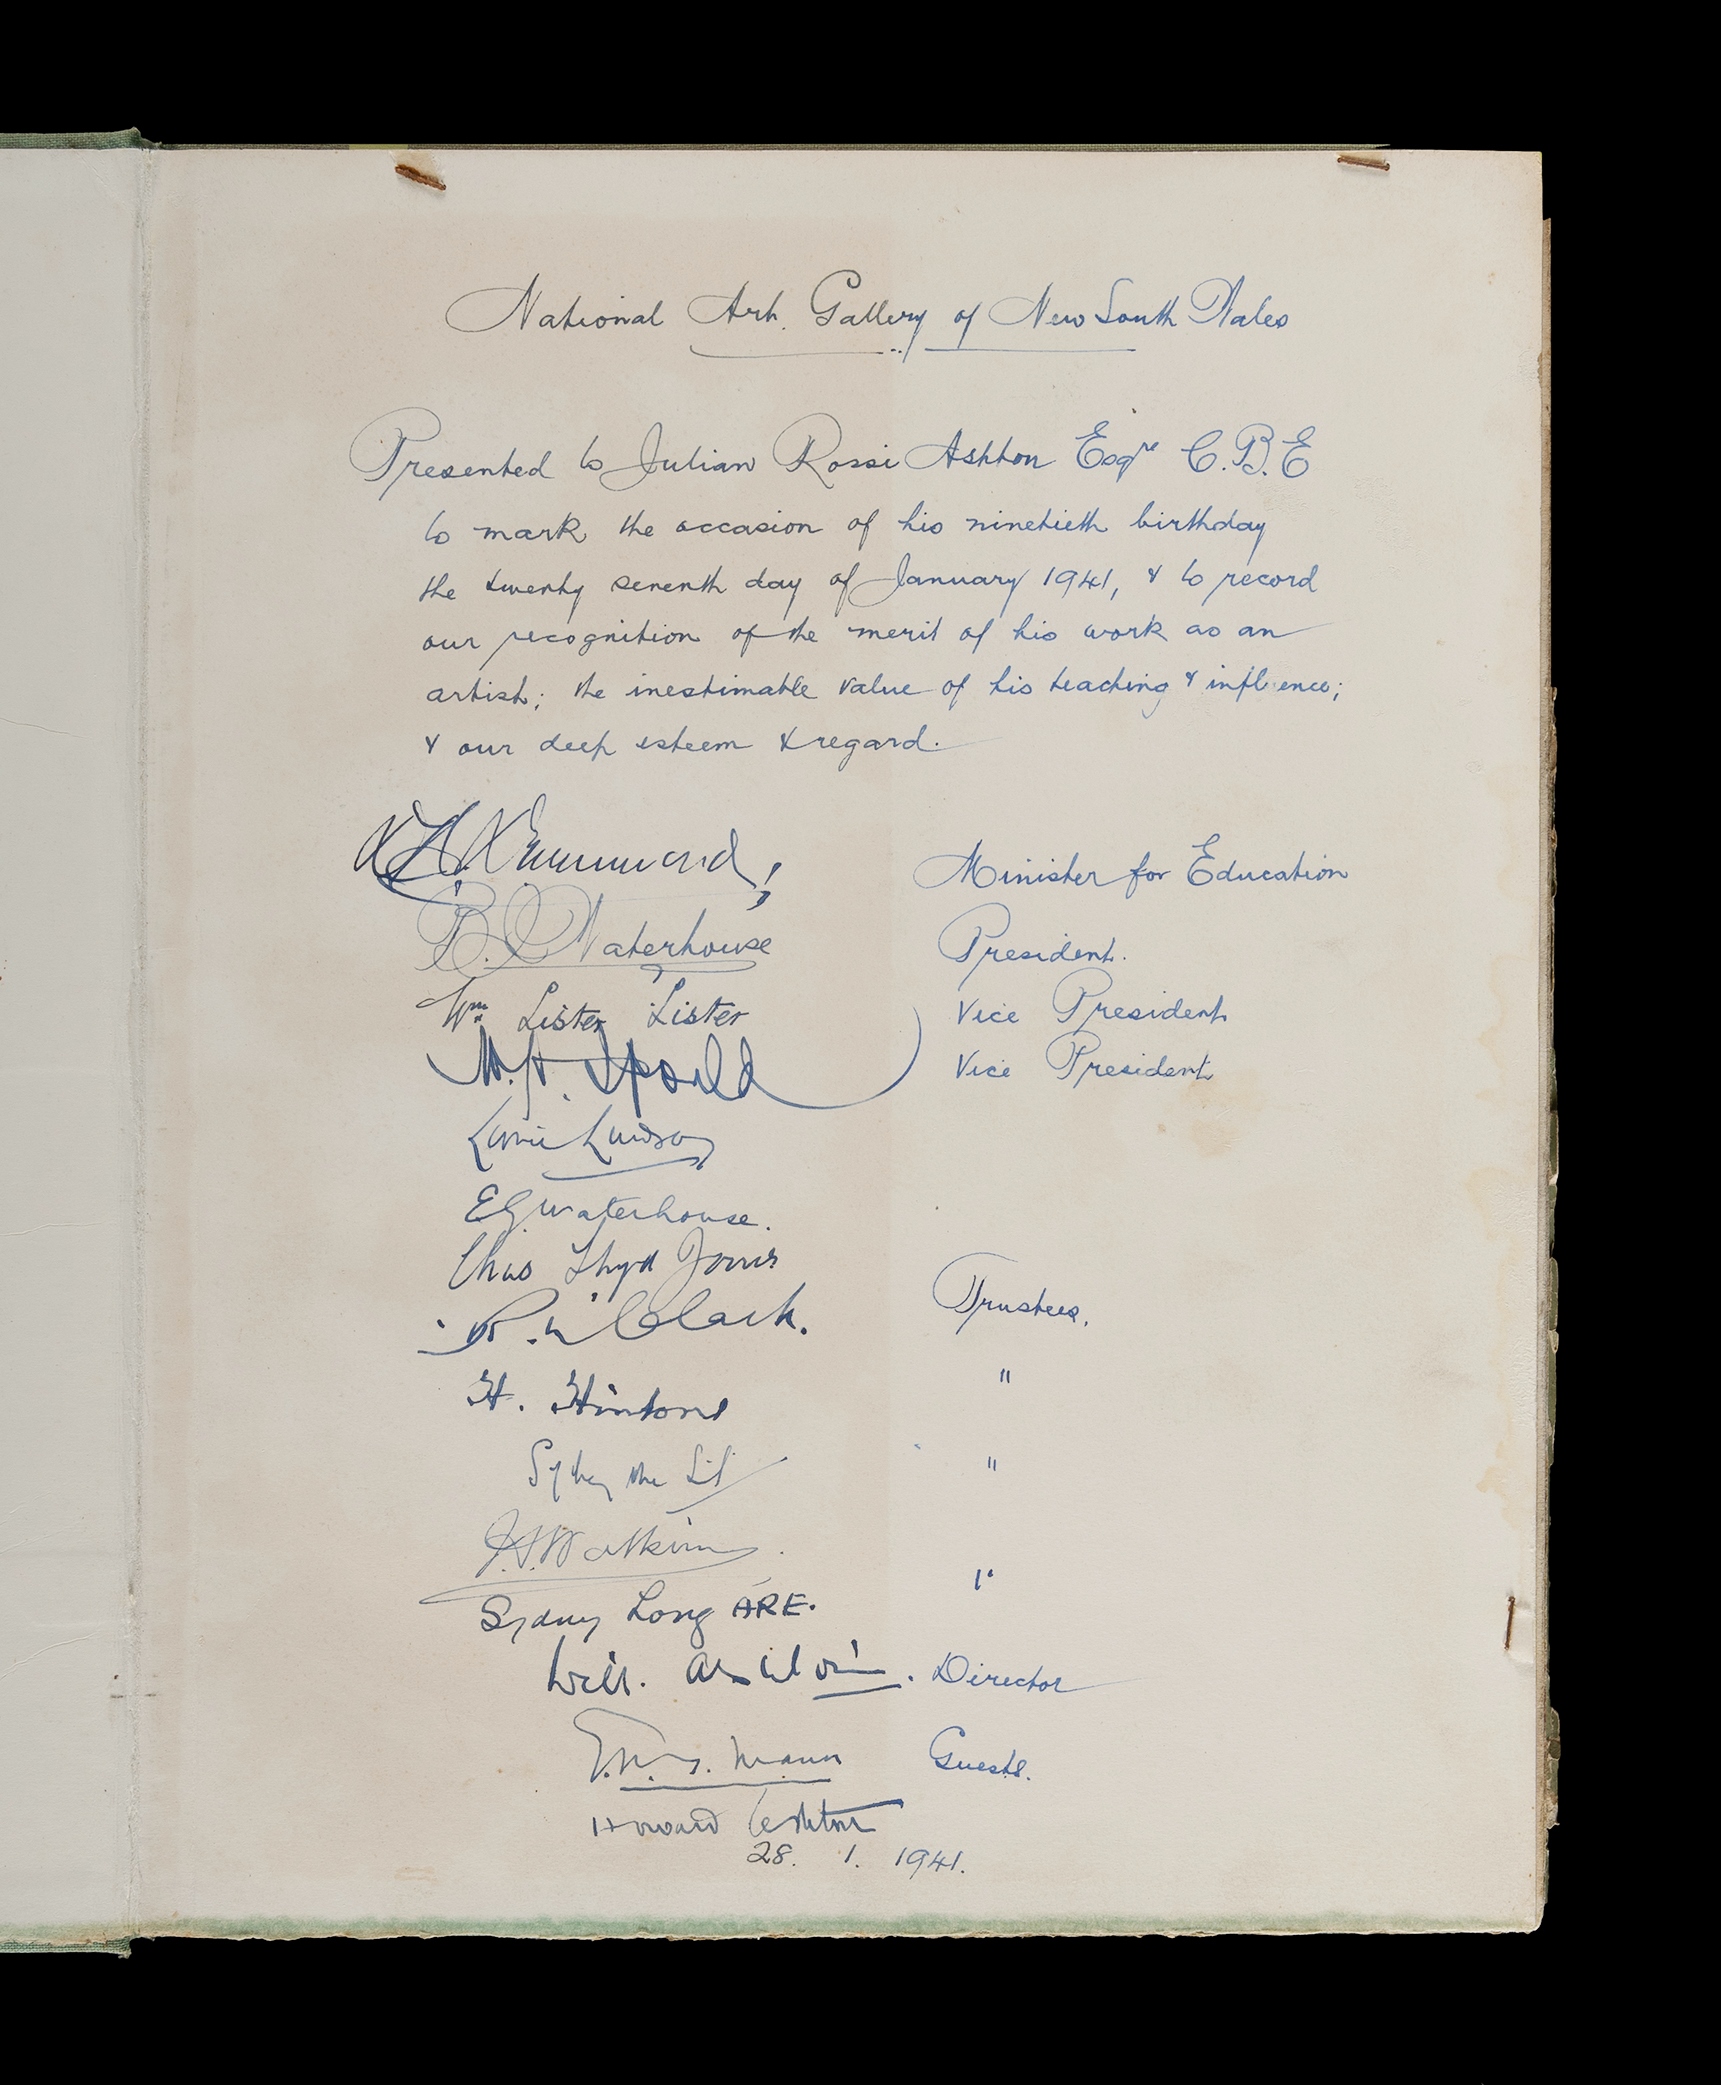 National Art Gallery of New South Wales
Presented to Julian Rossi Ashton Esqre C.B.E
to mark the occasion of his ninetieth birthday
the twenty seventh day of January 1941, & to record
our recognition of the merit of his work as an
artist; the inestimable value of his teaching & influence;
& our deep esteem & regard.
Drummond Minister for Education
B. J. Waterhouse President.
Wm Lister Lister Vice President
W. H. Ifould Vice President
Lionel Lindsay
E G Waterhouse.
Chas Lloyd Jones
Clark. Trustees.
H. Hinton "
"
J. S. Watkins "
Sydney Long ARE.
Will. Ashton. Director
Mann Guests.
Howard Ashton
28. 1. 1941.